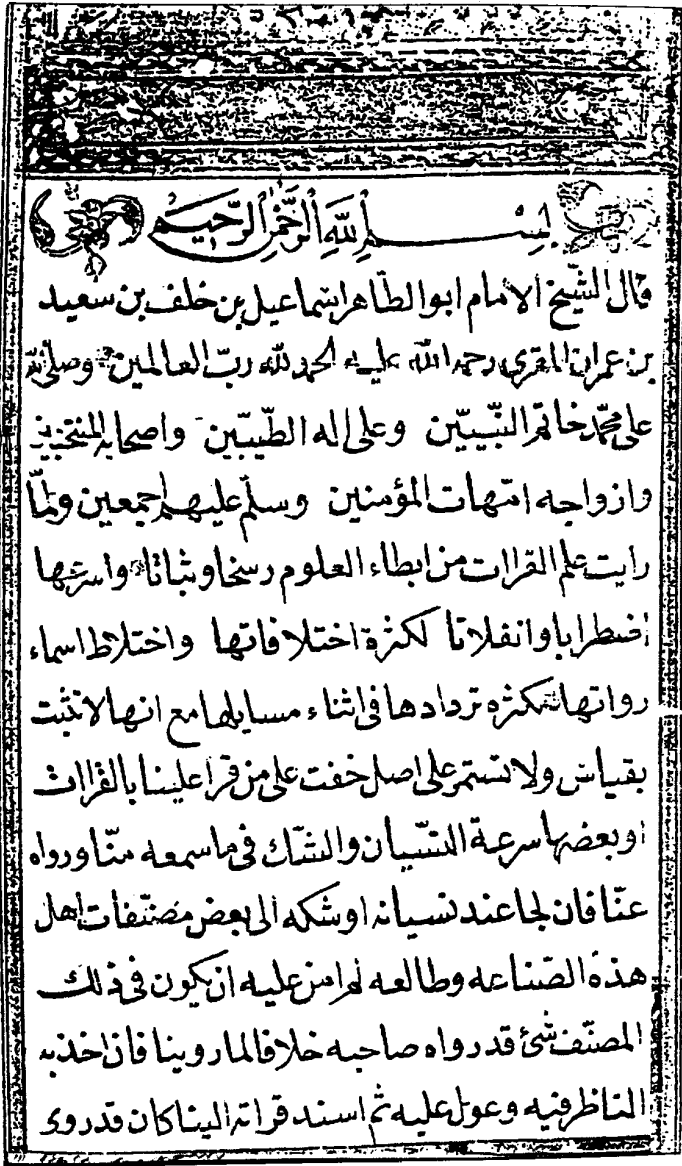 بِسْمِ اللَّهِ الرَّحْمٰنِ الرَّحِيمِ
قال الشيخ الامام ابو الطاهر اسماعيل بن خلف بن سعيد
بن عمران المقرى رحمه الله عليه الحمد لله رب العالمين وصلى الله
على محمد خاتم النبيين وعلى اله الطيبين واصحابه المنتخبين
وازواجه امهات المؤمنين وسلم عليهم اجمعين ولما
رايت علم القراات من ابطاء العلوم رسخا وثباتا واسرعها
اضطرابا وانفلاتا لكثرة اختلافاتها واختلاط اسماء
رواتها لكثره تردادها فى اثناء مسايلها مع انها لا تثبت
بقياس ولا تستمر على اصل خفت على من قرا علينا بالقراات
او بعضها سرعة النسيان والشك فى ما سمعه منا ورواه
عنا فان لجا عند نسيانه او شكه الى بعض مصنفات اهل
هذه الصناعه وطالعه لم امن عليه ان يكون فى ذلك
المصنف شئ قد رواه صاحبه خلافا لما روينا فان اخذ به
الناظر فيه وعول عليه ثم اسند قراته الينا كان قد روى